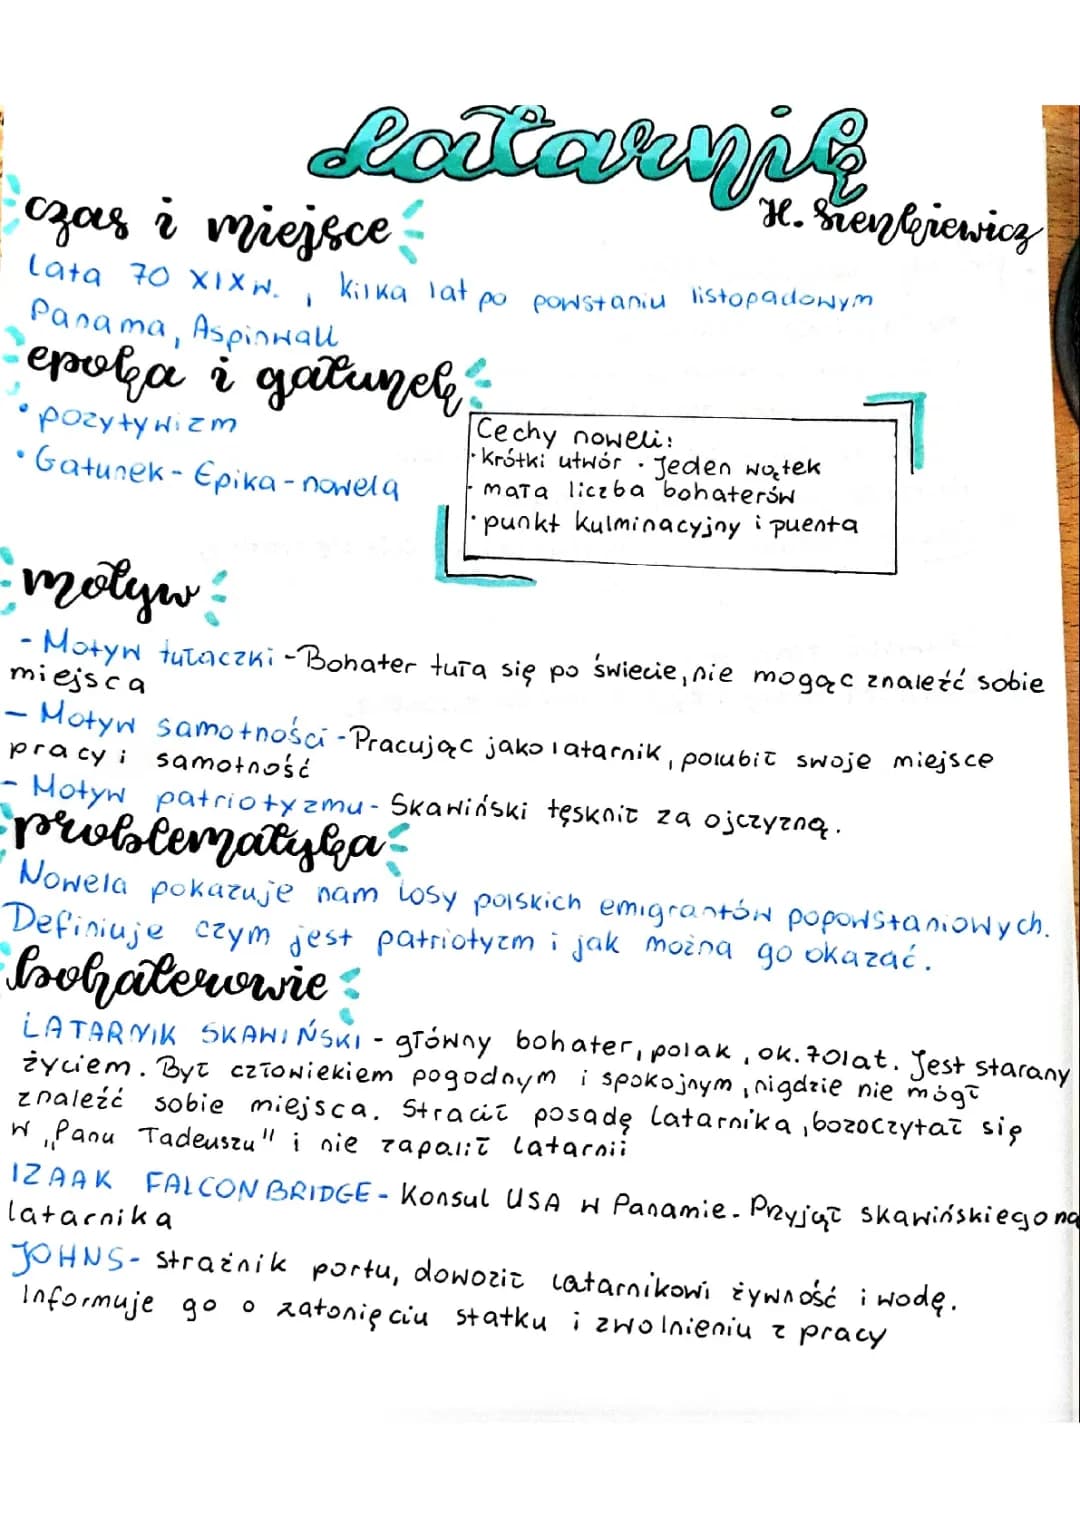 Latarnik
H. Sienkiewicz
czas i miejsce
Lata 70 XIX w., kilka lat po powstaniu listopadowym
Panama, Aspinwall
epoka i gatunek
• pozytywizm
• Gatunek - Epika - nowela
Cechy noweli:
· krótki utwór · Jeden wątek
· mała liczba bohaterów
· punkt kulminacyjny i puenta
motyw
- Motyw tułaczki - Bohater tuła się po świecie, nie mogąc znaleźć sobie
miejsca
- Motyw samotności - Pracując jako latarnik, polubił swoje miejsce
pracy i samotność
- Motyw patriotyzmu - Skawiński tęsknił za ojczyzną.
problematyka
Nowela pokazuje nam losy polskich emigrantów popowstaniowych.
Definiuje czym jest patriotyzm i jak można go okazać.
bohaterowie
LATARNIK SKAWIŃSKI - główny bohater, polak, ok. 70 lat. Jest starany
życiem. Był człowiekiem pogodnym i spokojnym, nigdzie nie mógł
znaleźć sobie miejsca. Stracił posadę latarnika, bo zoczytał się
w "Panu Tadeuszu" i nie zapalił latarnii
IZAAK FALCONBRIDGE - Konsul USA w Panamie. Przyjął skawińskiego na
latarnika
JOHNS - strażnik portu, dowoził latarnikowi żywność i wodę.
Informuje go o zatonięciu statku i zwolnieniu z pracy